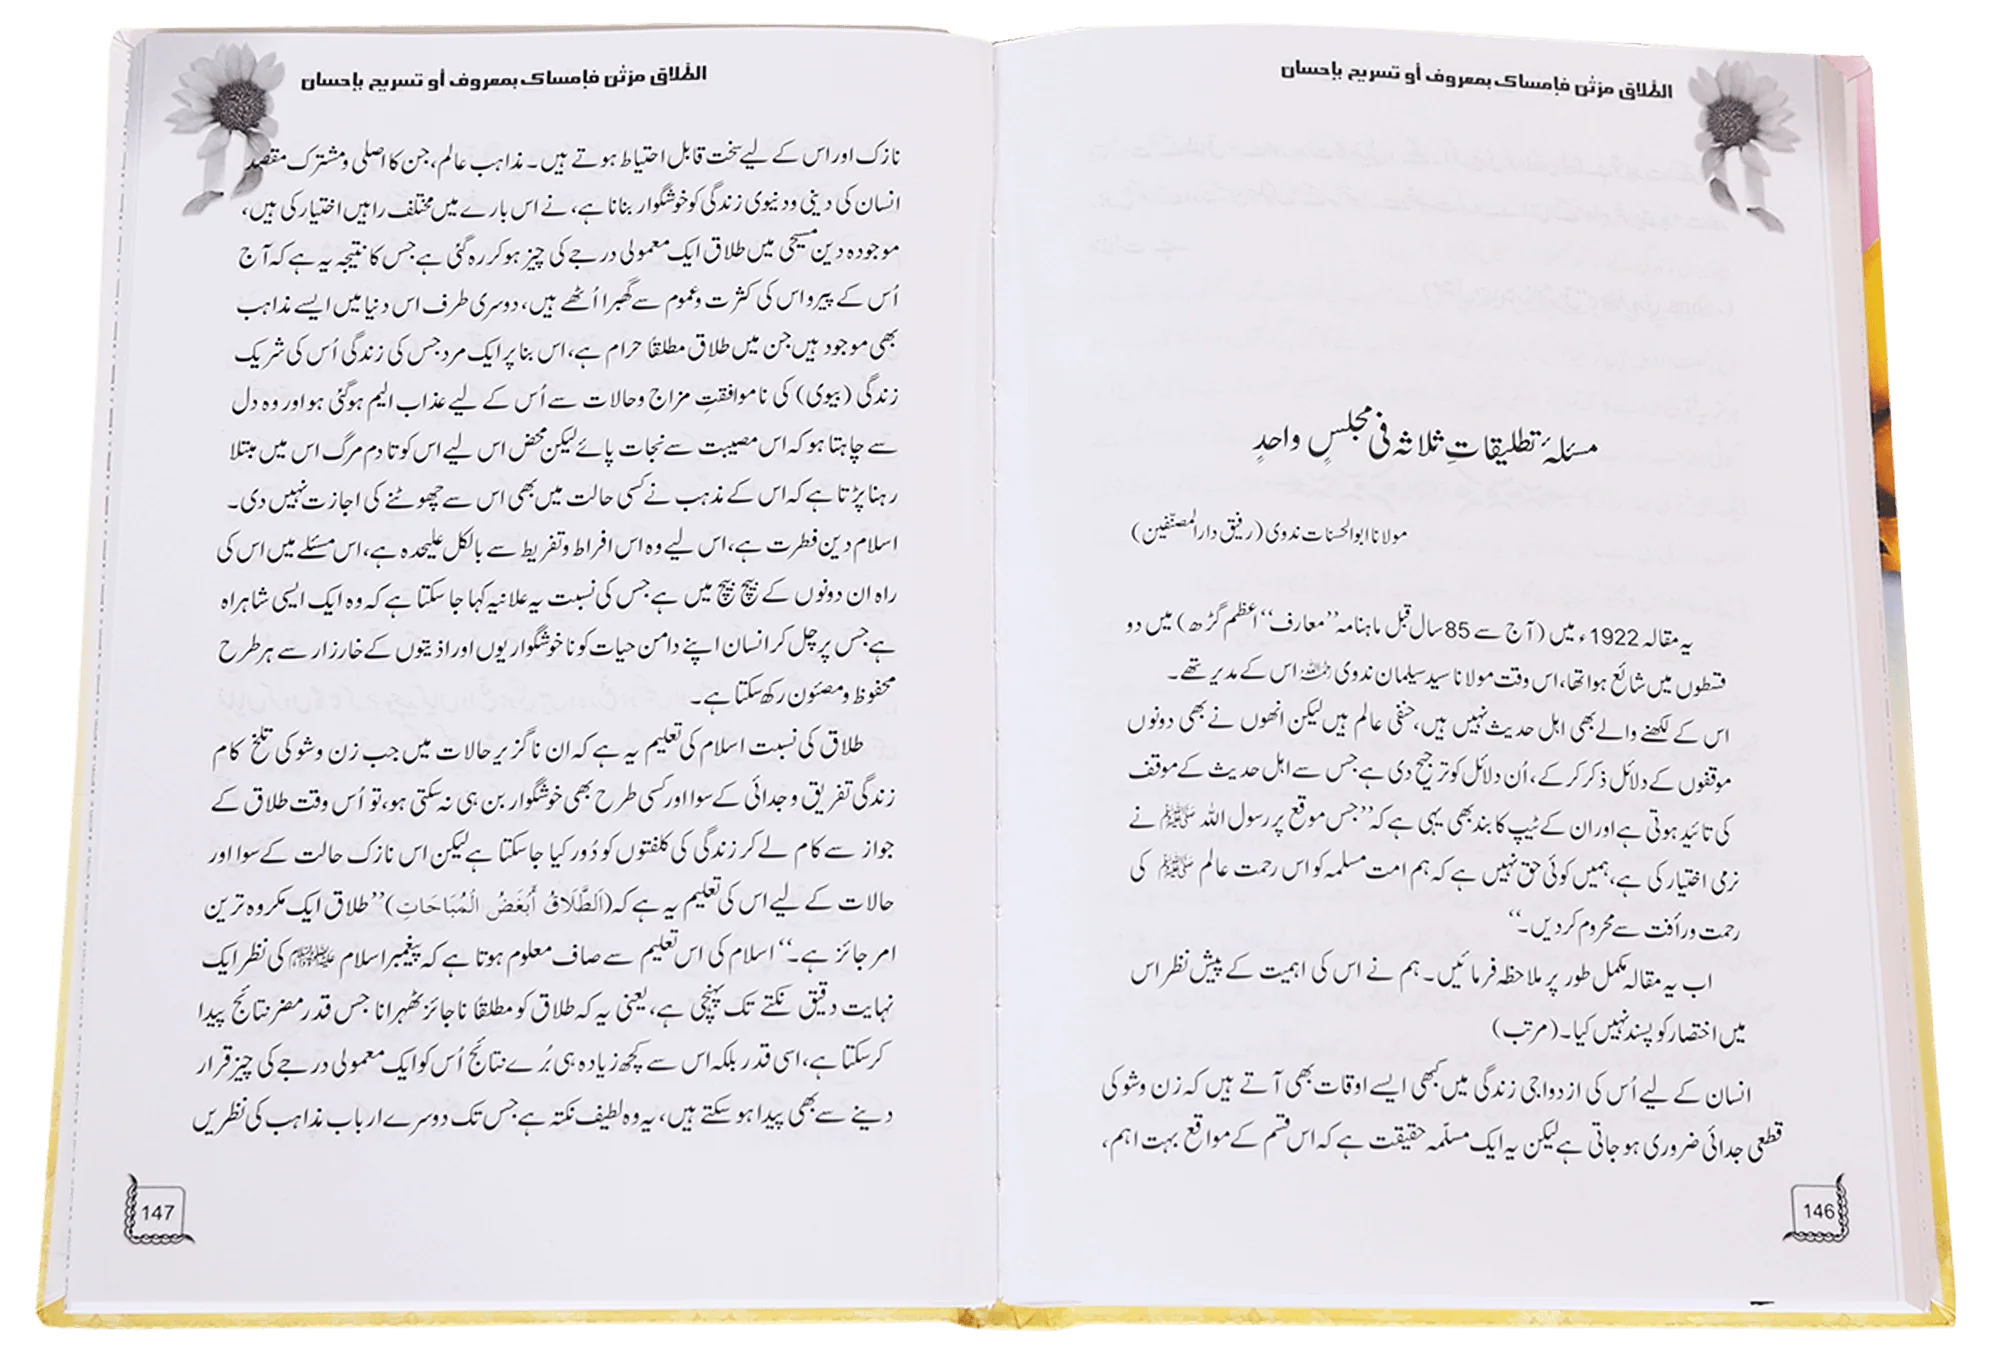 الطلاق مرتٰن فإمساک بمعروف أو تسریح بإحسان
مسئلۂ تطلیقاتِ ثلاثہ فی مجلسٍ واحدٍ
مولانا ابوالحسنات ندوی (رفیق دارالمصنّفین)
یہ مقالہ 1922ء میں (آج سے 85 سال قبل ماہنامہ ”معارف“ اعظم گڑھ) میں دو
قسطوں میں شائع ہوا تھا، اس وقت مولانا سید سلیمان ندوی رحمہ اللہ اس کے مدیر تھے۔
اس کے لکھنے والے بھی اہل حدیث نہیں ہیں، حنفی عالم ہیں لیکن انھوں نے بھی دونوں
موقفوں کے دلائل ذکر کرکے، اُن دلائل کو ترجیح دی ہے جس سے اہل حدیث کے موقف
کی تائید ہوتی ہے اور ان کے ٹیپ کا بند بھی یہی ہے کہ ”جس موقع پر رسول اللہ ﷺ نے
نرمی اختیار کی ہے، ہمیں کوئی حق نہیں ہے کہ ہم امت مسلمہ کو اس رحمت عالم ﷺ کی
رحمت و رأفت سے محروم کردیں۔“
اب یہ مقالہ مکمل طور پر ملاحظہ فرمائیں۔ ہم نے اس کی اہمیت کے پیش نظر اس
میں اختصار کو پسند نہیں کیا۔ (مرتب)
انسان کے لیے اُس کی ازدواجی زندگی میں کبھی ایسے اوقات بھی آتے ہیں کہ زن وشو کی
قطعی جدائی ضروری ہو جاتی ہے لیکن یہ ایک مسلّمہ حقیقت ہے کہ اس قسم کے مواقع بہت اہم،
146
الطلاق مرتٰن فإمساک بمعروف أو تسریح بإحسان
نازک اور اس کے لیے سخت قابل احتیاط ہوتے ہیں۔ مذاہب عالم، جن کا اصلی و مشترک مقصد
انسان کی دینی و دنیوی زندگی کو خوشگوار بنانا ہے، نے اس بارے میں مختلف راہیں اختیار کی ہیں،
موجودہ دین مسیحی میں طلاق ایک معمولی درجے کی چیز ہو کر رہ گئی ہے جس کا نتیجہ یہ ہے کہ آج
اُس کے پیرو اس کی کثرت و عموم سے گھبرا اُٹھے ہیں، دوسری طرف اس دنیا میں ایسے مذاہب
بھی موجود ہیں جن میں طلاق مطلقًا حرام ہے، اس بنا پر ایک مرد جس کی زندگی اُس کی شریک
زندگی (بیوی) کی ناموافقتِ مزاج وحالات سے اُس کے لیے عذاب الیم ہوگئی ہو اور وہ دل
سے چاہتا ہو کہ اس مصیبت سے نجات پائے لیکن محض اس لیے اس کو تا دم مرگ اس میں مبتلا
رہنا پڑتا ہے کہ اس کے مذہب نے کسی حالت میں بھی اس سے چھوٹنے کی اجازت نہیں دی۔
اسلام دین فطرت ہے، اس لیے وہ اس افراط و تفریط سے بالکل علیحدہ ہے، اس مسئلے میں اس کی
راہ ان دونوں کے بیچ بیچ میں ہے جس کی نسبت یہ علانیہ کہا جا سکتا ہے کہ وہ ایک ایسی شاہراہ
ہے جس پر چل کر انسان اپنے دامن حیات کو ناخوشگواریوں اور اذیتوں کے خارزار سے ہر طرح
محفوظ و مصئون رکھ سکتا ہے۔
طلاق کی نسبت اسلام کی تعلیم یہ ہے کہ ان ناگزیر حالات میں جب زن وشو کی تلخ کام
زندگی تفریق و جدائی کے سوا اور کسی طرح بھی خوشگوار بن ہی نہ سکتی ہو، تو اُس وقت طلاق کے
جواز سے کام لے کر زندگی کی کلفتوں کو دُور کیا جا سکتا ہے لیکن اس نازک حالت کے سوا اور
حالات کے لیے اس کی تعلیم یہ ہے کہ (اَلطَّلَاقُ أَبْغَضُ الْمُبَاحَاتِ) ”طلاق ایک مکروہ ترین
امر جائز ہے۔“ اسلام کی اس تعلیم سے صاف معلوم ہوتا ہے کہ پیغمبر اسلام ﷺ کی نظر ایک
نہایت دقیق نکتے تک پہنچی ہے، یعنی یہ کہ طلاق کو مطلقًا ناجائز ٹھہرانا جس قدر مضر نتائج پیدا
کر سکتا ہے، اسی قدر بلکہ اس سے کچھ زیادہ ہی بُرے نتائج اُس کو ایک معمولی درجے کی چیز قرار
دینے سے بھی پیدا ہو سکتے ہیں، یہ وہ لطیف نکتہ ہے جس تک دوسرے ارباب مذاہب کی نظریں
147